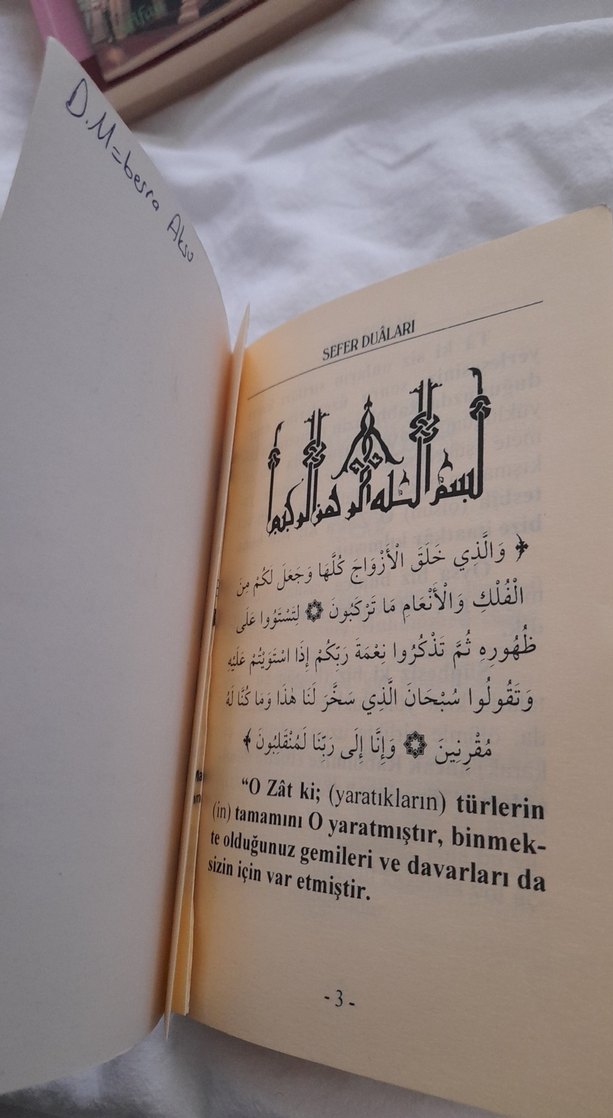 D.M=besra Aksu
SEFER DUÂLARI
بسم الله الرحمن الرحيم
﴿ وَالَّذِي خَلَقَ الْأَزْوَاجَ كُلَّهَا وَجَعَلَ لَكُمْ مِنَ
الْفُلْكِ وَالْأَنْعَامِ مَا تَرْكَبُونَ ۞ لِتَسْتَوُوا عَلَى
ظُهُورِهِ ثُمَّ تَذْكُرُوا نِعْمَةَ رَبِّكُمْ إِذَا اسْتَوَيْتُمْ عَلَيْهِ
وَتَقُولُوا سُبْحَانَ الَّذِي سَخَّرَ لَنَا هٰذَا وَمَا كُنَّا لَهُ
مُقْرِنِينَ ۞ وَإِنَّا إِلَى رَبِّنَا لَمُنْقَلِبُونَ ﴾
“O Zât ki; (yaratıkların) türlerin
(in) tamamını O yaratmıştır, binmek-
te olduğunuz gemileri ve davarları da
sizin için var etmiştir.
- 3 -